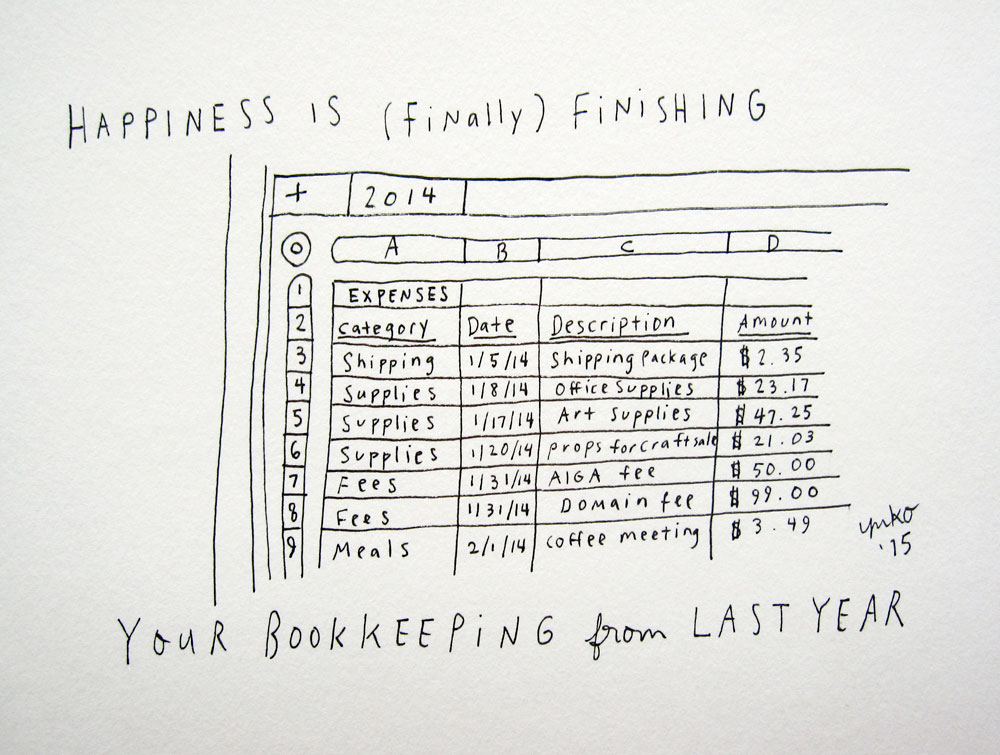 HAPPINESS IS (finally) FINISHING
+ 2014
A B C D
1 EXPENSES
2 Category Date Description Amount
3 Shipping 1/5/14 Shipping Package $2.35
4 Supplies 1/8/14 Office Supplies $23.17
5 Supplies 1/17/14 Art Supplies $47.25
6 Supplies 1/20/14 props for craft sale $21.03
7 Fees 1/31/14 AIGA fee $50.00
8 Fees 1/31/14 Domain fee $99.00
9 Meals 2/1/14 coffee meeting $3.49
yuko
'15
YOUR BOOKKEEPING from LAST YEAR